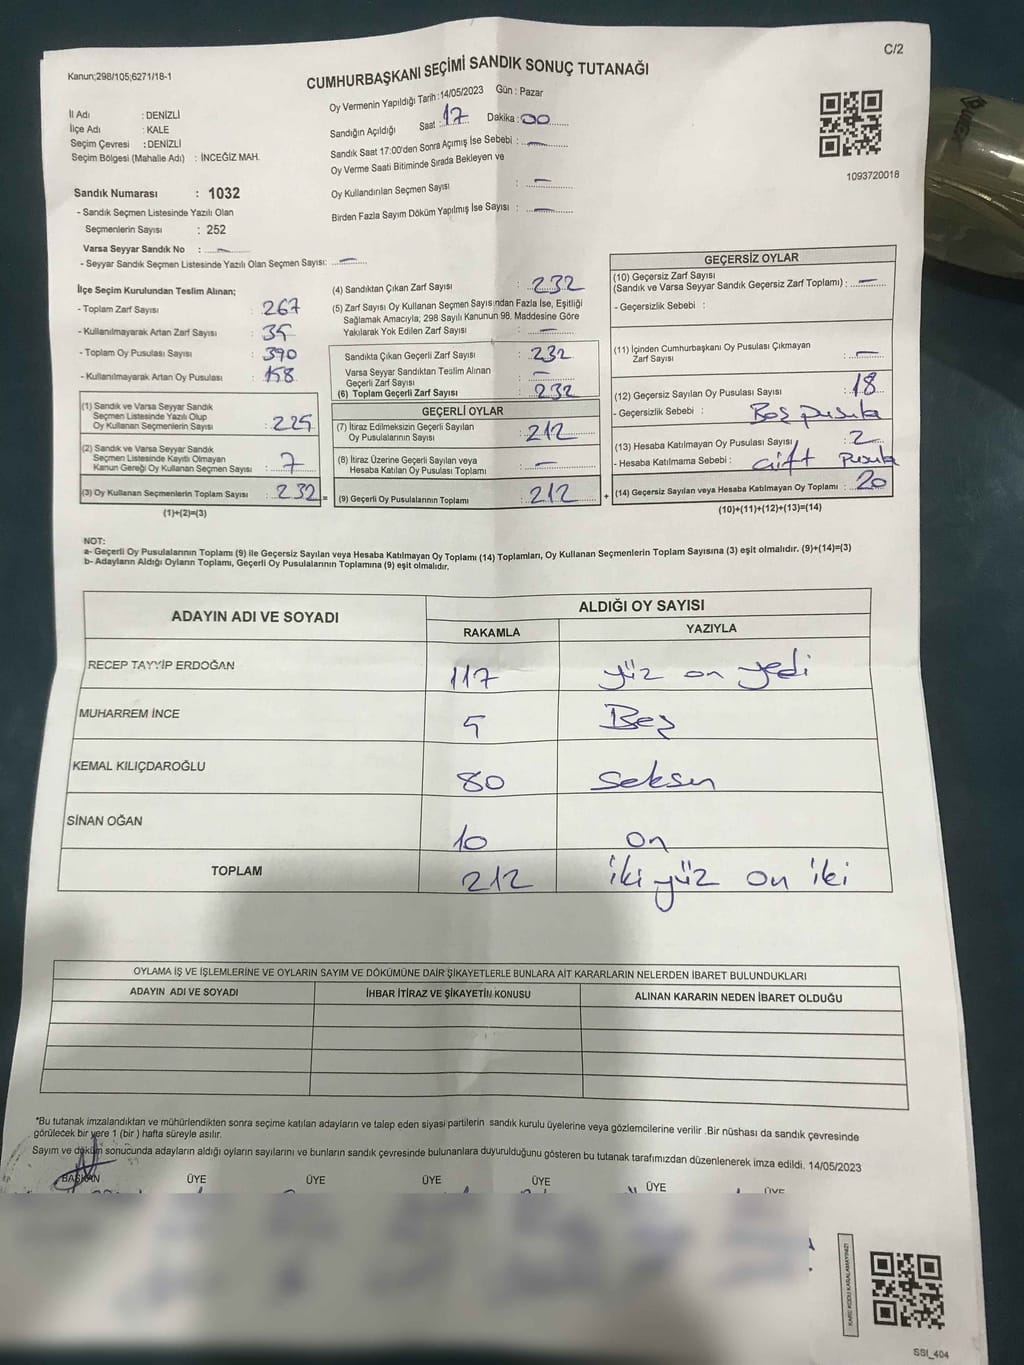 C/2
Kanun;298/105;6271/18-1
CUMHURBAŞKANI SEÇİMİ SANDIK SONUÇ TUTANAĞI
İl Adı : DENİZLİ
İlçe Adı : KALE
Seçim Çevresi : DENİZLİ
Seçim Bölgesi (Mahalle Adı) : İNCEĞİZ MAH.
Sandık Numarası : 1032
- Sandık Seçmen Listesinde Yazılı Olan
Seçmenlerin Sayısı : 252
Varsa Seyyar Sandık No : —
- Seyyar Sandık Seçmen Listesinde Yazılı Olan Seçmen Sayısı: —
Oy Vermenin Yapıldığı Tarih :14/05/2023 Gün : Pazar
Sandığın Açıldığı Saat : 17 Dakika : 00
Sandık Saat 17:00'den Sonra Açımış İse Sebebi : —
Oy Verme Saati Bitiminde Sırada Bekleyen ve
Oy Kullandırılan Seçmen Sayısı : —
Birden Fazla Sayım Döküm Yapılmış İse Sayısı : —
1093720018
İlçe Seçim Kurulundan Teslim Alınan;
- Toplam Zarf Sayısı : 267
- Kullanılmayarak Artan Zarf Sayısı : 35
- Toplam Oy Pusulası Sayısı : 390
- Kullanılmayarak Artan Oy Pusulası : 158
(1) Sandık ve Varsa Seyyar Sandık
Seçmen Listesinde Yazılı Olup
Oy Kullanan Seçmenlerin Sayısı : 225
(2) Sandık ve Varsa Seyyar Sandık
Seçmen Listesinde Kayıtlı Olmayan
Kanun Gereği Oy Kullanan Seçmen Sayısı : 7
(3) Oy Kullanan Seçmenlerin Toplam Sayısı : 232 =
(1)+(2)=(3)
(4) Sandıktan Çıkan Zarf Sayısı : 232
(5) Zarf Sayısı Oy Kullanan Seçmen Sayısından Fazla İse, Eşitliği
Sağlamak Amacıyla; 298 Sayılı Kanunun 98. Maddesine Göre
Yakılarak Yok Edilen Zarf Sayısı : —
Sandıkta Çıkan Geçerli Zarf Sayısı : 232
Varsa Seyyar Sandıktan Teslim Alınan
Geçerli Zarf Sayısı : —
(6) Toplam Geçerli Zarf Sayısı : 232
GEÇERLİ OYLAR
(7) İtiraz Edilmeksizin Geçerli Sayılan
Oy Pusulalarının Sayısı : 212
(8) İtiraz Üzerine Geçerli Sayılan veya
Hesaba Katılan Oy Pusulası Toplamı : —
(9) Geçerli Oy Pusulalarının Toplamı : 212 +
GEÇERSİZ OYLAR
(10) Geçersiz Zarf Sayısı
(Sandık ve Varsa Seyyar Sandık Geçersiz Zarf Toplamı) : —
- Geçersizlik Sebebi :
(11) İçinden Cumhurbaşkanı Oy Pusulası Çıkmayan
Zarf Sayısı : —
(12) Geçersiz Sayılan Oy Pusulası Sayısı : 18
- Geçersizlik Sebebi : Boş pusula
(13) Hesaba Katılmayan Oy Pusulası Sayısı : 2
- Hesaba Katılmama Sebebi : Çift pusula
(14) Geçersiz Sayılan veya Hesaba Katılmayan Oy Toplamı : 20
(10)+(11)+(12)+(13)=(14)
NOT:
a- Geçerli Oy Pusulalarının Toplamı (9) ile Geçersiz Sayılan veya Hesaba Katılmayan Oy Toplamı (14) Toplamları, Oy Kullanan Seçmenlerin Toplam Sayısına (3) eşit olmalıdır. (9)+(14)=(3)
b- Adayların Aldığı Oyların Toplamı, Geçerli Oy Pusulalarının Toplamına (9) eşit olmalıdır.
ADAYIN ADI VE SOYADI
ALDIĞI OY SAYISI
RAKAMLA YAZIYLA
RECEP TAYYİP ERDOĞAN 117 yüz on yedi
MUHARREM İNCE 5 Beş
KEMAL KILIÇDAROĞLU 80 seksen
SİNAN OĞAN 10 on
TOPLAM 212 iki yüz on iki
OYLAMA İŞ VE İŞLEMLERİNE VE OYLARIN SAYIM VE DÖKÜMÜNE DAİR ŞİKAYETLERLE BUNLARA AİT KARARLARIN NELERDEN İBARET BULUNDUKLARI
ADAYIN ADI VE SOYADI İHBAR İTİRAZ VE ŞİKAYETİN KONUSU ALINAN KARARIN NEDEN İBARET OLDUĞU
*Bu tutanak imzalandıktan ve mühürlendikten sonra seçime katılan adayların ve talep eden siyasi partilerin sandık kurulu üyelerine veya gözlemcilerine verilir .Bir nüshası da sandık çevresinde
görülecek bir yere 1 (bir ) hafta süreyle asılır.
Sayım ve döküm sonucunda adayların aldığı oyların sayılarını ve bunların sandık çevresinde bulunanlara duyurulduğunu gösteren bu tutanak tarafımızdan düzenlenerek imza edildi. 14/05/2023
BAŞKAN ÜYE ÜYE ÜYE ÜYE ÜYE ÜYE
KARE KODU KARALAMAYINIZ!
SSI_404